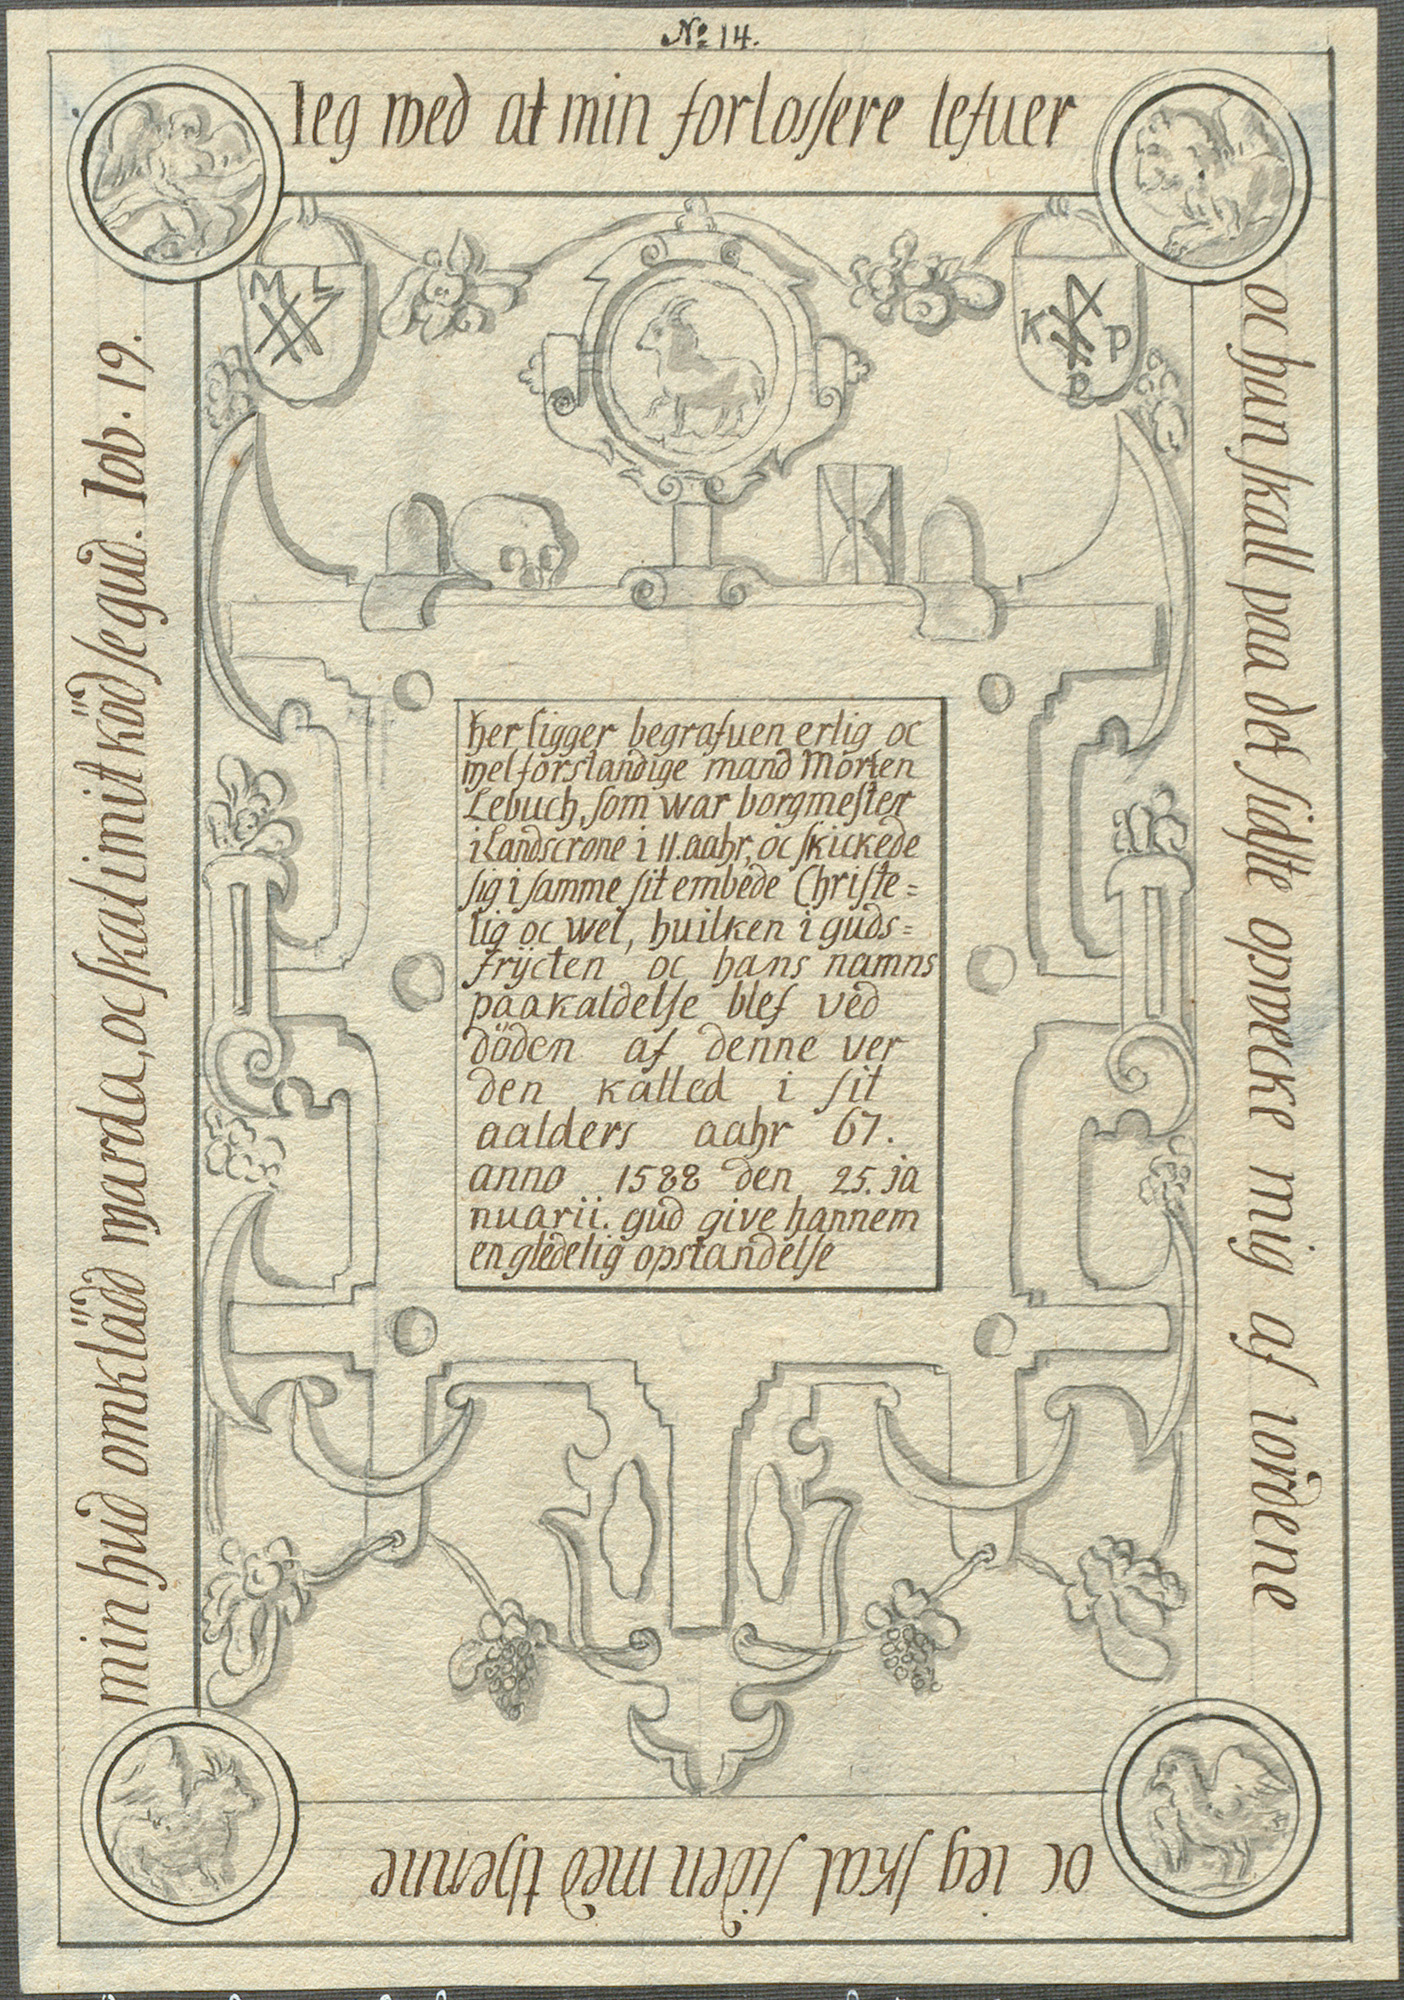 No 14.
Ieg wed at min forlossere lefuer
oc han skall paa det sidste opwecke mig af iordene
oc ieg skal siden med thenne
min hud omklädd warda, oc skal i mit ködse gud. Iob. 19.
M L
K P
P
her ligger begrafuen erlig oc
welforstandige mand Morten
Lebuch, som war borgmester
i Landscrone i 11. aahr, oc skickede
sig i samme sit embede Christe=
lig oc wel, huilken i guds=
frÿcten oc hans namns
paakaldelse blef ved
döden af denne ver
den kalled i sit
aalders aahr 67.
anno 1588 den 25. ja
nuarii. gud give hannem
en gledelig opstandelse